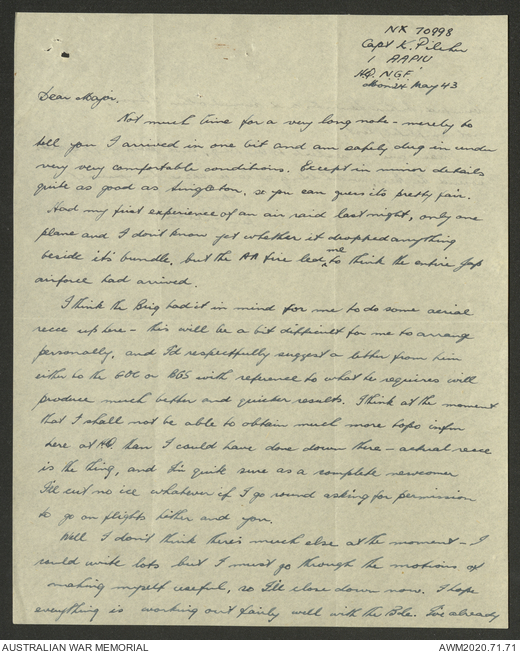 NX 70998
Capt K. Pilcher
1 AAPIU
HQ. N.G.F.
Mon 24 May 43
Dear Major.
Not much time for a very long note – merely to
tell you I arrived in one bit and am safely dug in under
very very comfortable conditions. Except in minor details
quite as good as Singleton, so you can guess its pretty fair.
Had my first experience of an air raid last night, only one
plane and I don't know yet whether it dropped anything
beside its bundle, but the AA fire led me to think the entire Jap
airforce had arrived.
I think the Brig had it in mind for me to do some aerial
recce up here – this will be a bit difficult for me to arrange
personally, and I'd respectfully suggest a letter from him
either to the GOC or BGS with reference to what he requires will
produce much better and quicker results. I think at the moment
that I shall not be able to obtain much more topo infm
here at HQ than I could have done down there – actual recce
is the thing, and I'm quite sure as a complete newcomer
I'll cut no ice whatever if I go round asking for permission
to go on flights hither and yon.
Well I don't think there's much else at the moment – I
could write lots but I must go through the motions of
making myself useful, so I'll close down now. I hope
everything is working out fairly well with the Bde. I've already
AUSTRALIAN WAR MEMORIAL
AWM2020.71.71